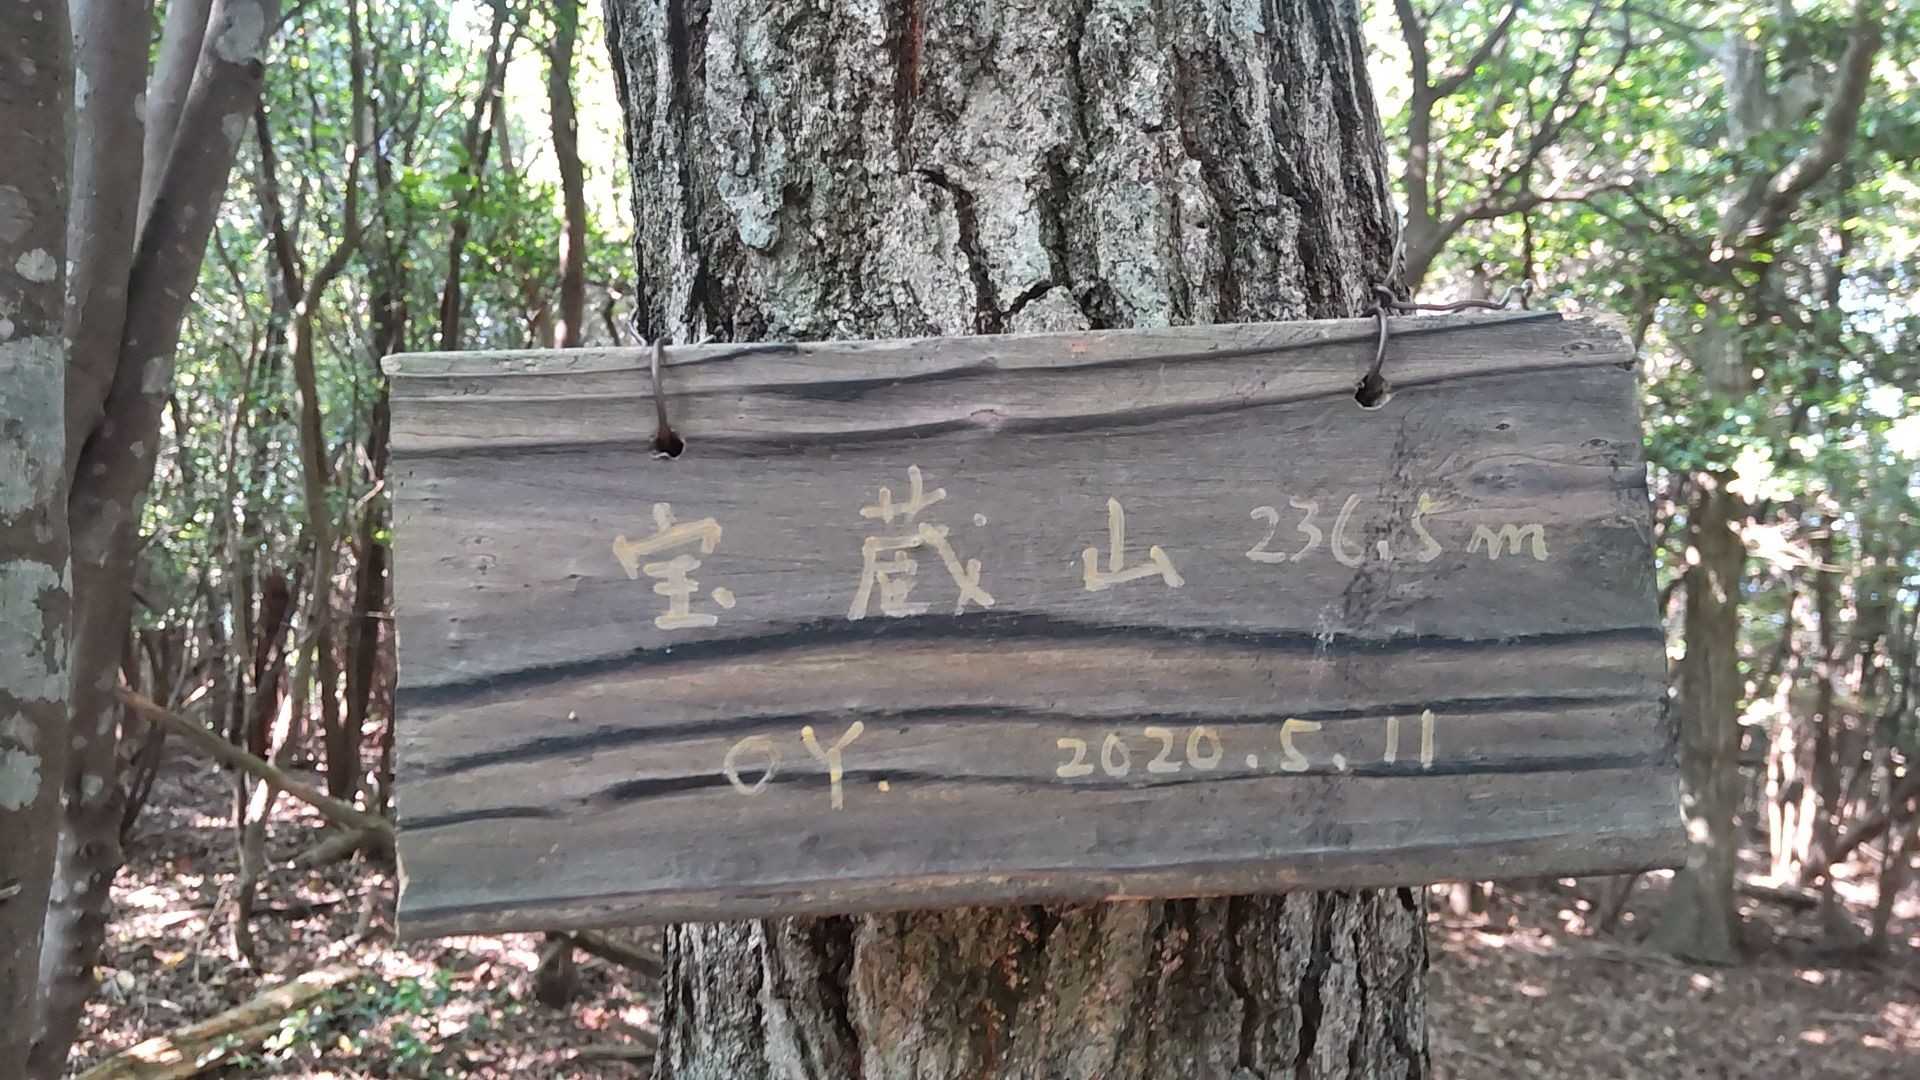 宝蔵山 236.5m
OY. 2020.5.11